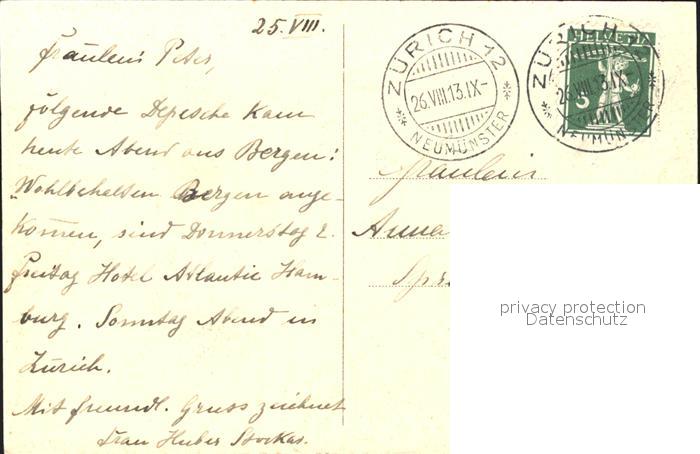 25. VIII.
Fräulein Peter,
folgende Depesche kam
heute Abend aus Bergen:
"Wohlbehalten Bergen ange-
kommen, sind Donnerstag &
Freitag Hotel Atlantic Ham-
burg. Sonntag Abend in
Zürich.
Mit freundl. Gruss zeichnet
Frau Huber Stockar.
ZÜRICH 12
26.VIII.13.IX-
NEUMÜNSTER
HELVETIA
5
ZÜRICH 12
26.VIII.13.IX-
NEUMÜNSTER
Fräulein
Anna
privacy protection
Datenschutz